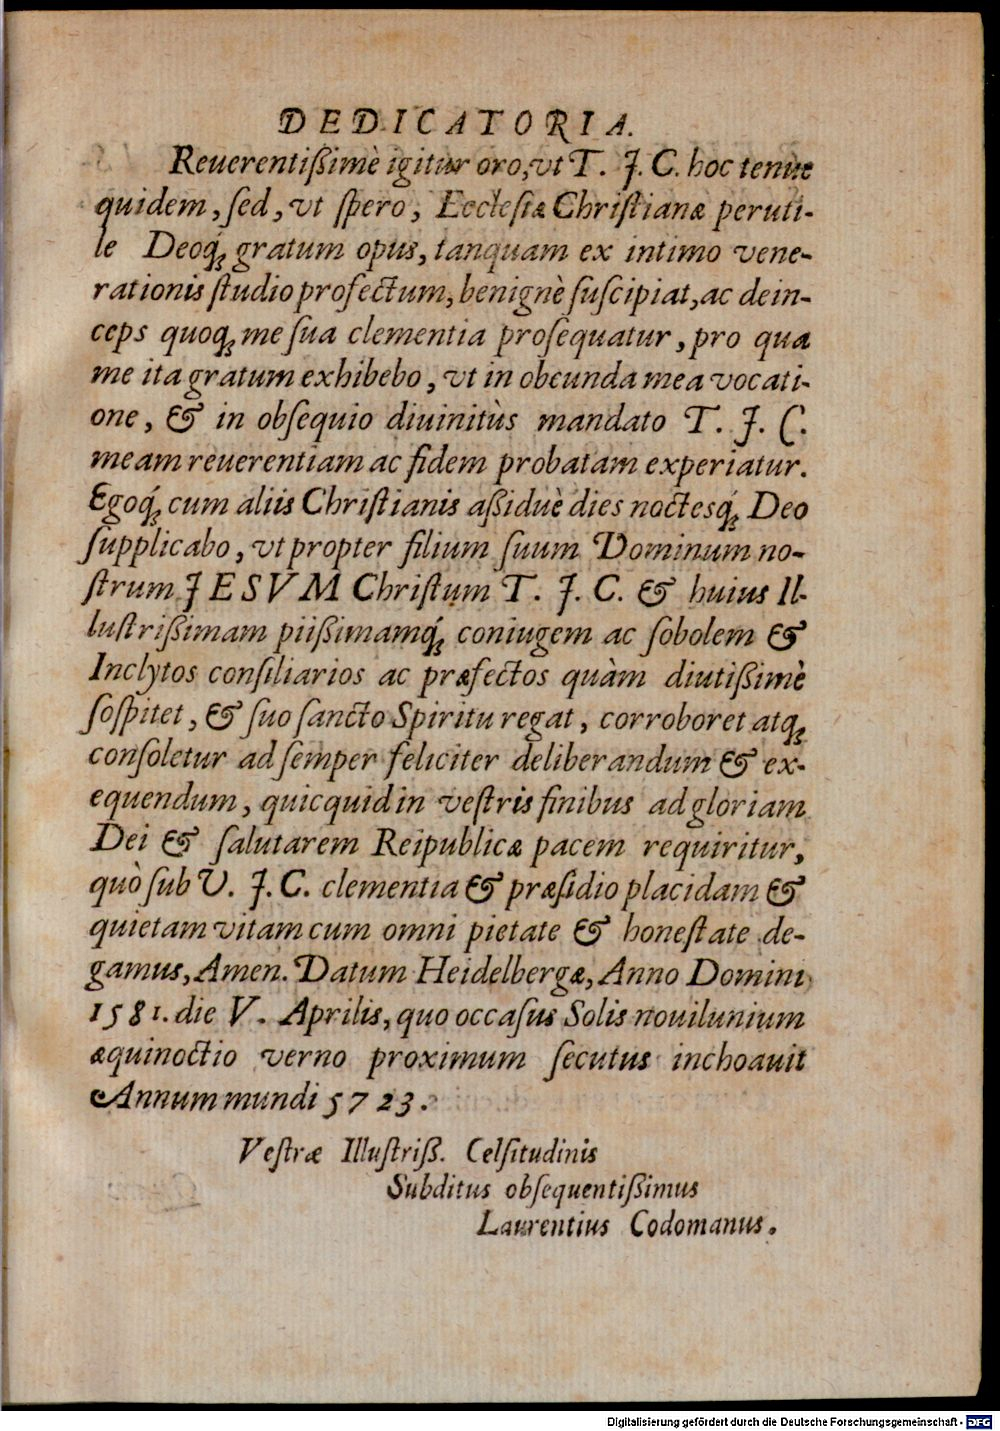 DEDICATORIA.
Reuerentißimè igitur oro, vt T. J. C. hoc tenue
quidem, ſed, vt ſpero, Eccleſiæ Chriſtianæ peruti-
le Deoq́ꝫ gratum opus, tanquam ex intimo vene-
rationis ſtudio profectum, benignè ſuſcipiat, ac dein-
ceps quoqꝫ me ſua clementia proſequatur, pro qua
me ita gratum exhibebo, vt in obeunda mea vocati-
one, & in obſequio diuinitùs mandato T. J. C.
meam reuerentiam ac fidem probatam experiatur.
Egoq́ꝫ cum aliis Chriſtianis aßiduè dies noctesq́ꝫ Deo
ſupplicabo, vt propter filium ſuum Dominum no-
ſtrum JESVM Chriſtum T. J. C. & huius Il-
luſtrißimam piißimamq́ꝫ coniugem ac ſobolem &
Inclytos conſiliarios ac præfectos quàm diutißimè
ſoſpitet, & ſuo ſancto Spiritu regat, corroboret atqꝫ
conſoletur ad ſemper feliciter deliberandum & ex-
equendum, quicquid in veſtris finibus ad gloriam
Dei & ſalutarem Reipublicæ pacem requiritur,
quò ſub V. J. C. clementia & præſidio placidam &
quietam vitam cum omni pietate & honeſtate de-
gamus, Amen. Datum Heidelbergæ, Anno Domini
1581. die V. Aprilis, quo occaſus Solis nouilunium
æquinoctio verno proximum ſecutus inchoauit
Annum mundi 5723.
Veſtræ Illuſtriß. Celſitudinis
Subditus obſequentißimus
Laurentius Codomanus.
Digitalisierung gefördert durch die Deutsche Forschungsgemeinschaft - DFG